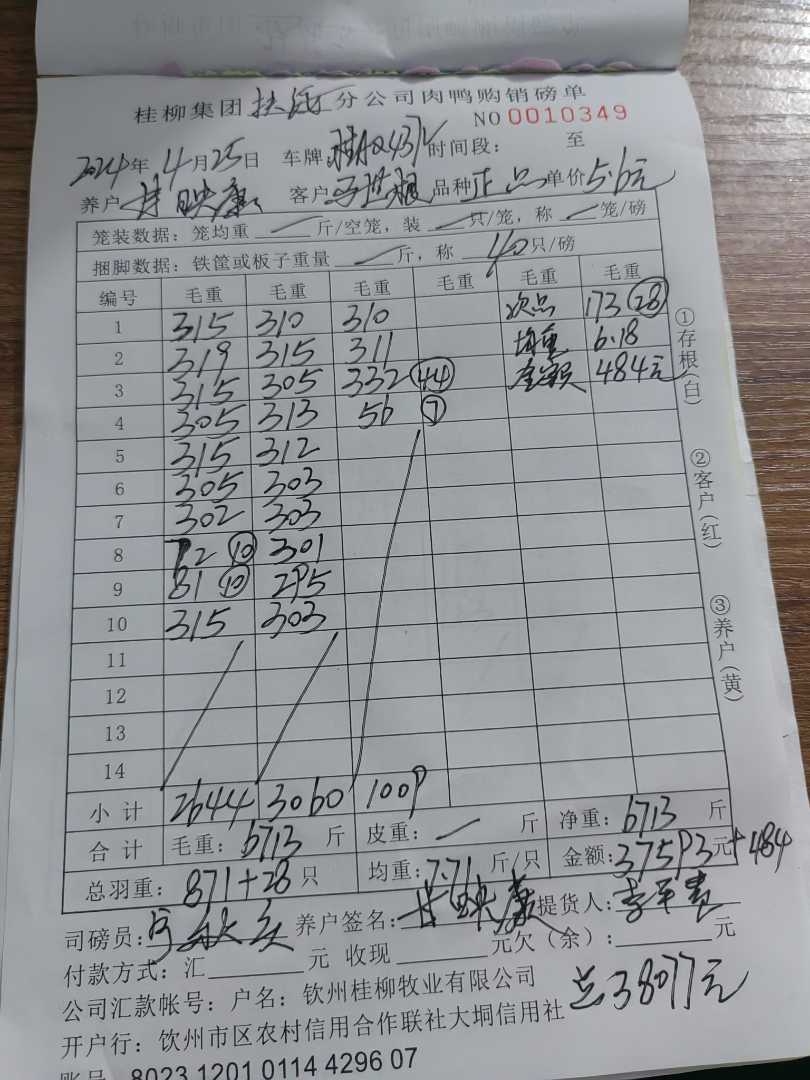 桂柳集团 分公司肉鸭购销磅单
NO 0010349
2024年4月25日 车牌: 时间段: 至
养户 甘映康 客户 品种正品 单价5.6元
笼装数据: 笼均重 斤/空笼, 装 只/笼, 称 笼/磅
捆脚数据: 铁筐或板子重量 斤, 称 40 只/磅
编号 毛重 毛重 毛重 毛重 毛重 毛重
1 315 310 310 次品 173 (28)
2 319 315 311 均重 6.18
3 315 305 332 (44) 金额 484元
4 305 313 56 (7)
5 315 312
6 305 303
7 302 303
8 72 (10) 301
9 81 (10) 295
10 315 303
11
12
13
14
小计 2644 3060 1009
合计 毛重: 6713 斤 皮重: 斤 净重: 6713 斤
总羽重: 871+28 只 均重: 7.71 斤/只 金额: 37593元+484
司磅员: 养户签名: 甘映康 提货人:
付款方式: 汇 元 收现 元欠(余): 元
公司汇款帐号: 户名: 钦州桂柳牧业有限公司
总38077元
开户行: 钦州市区农村信用合作联社大垌信用社
账号 8023 1201 0114 4296 07
①存根(白)
②客户(红)
③养户(黄)